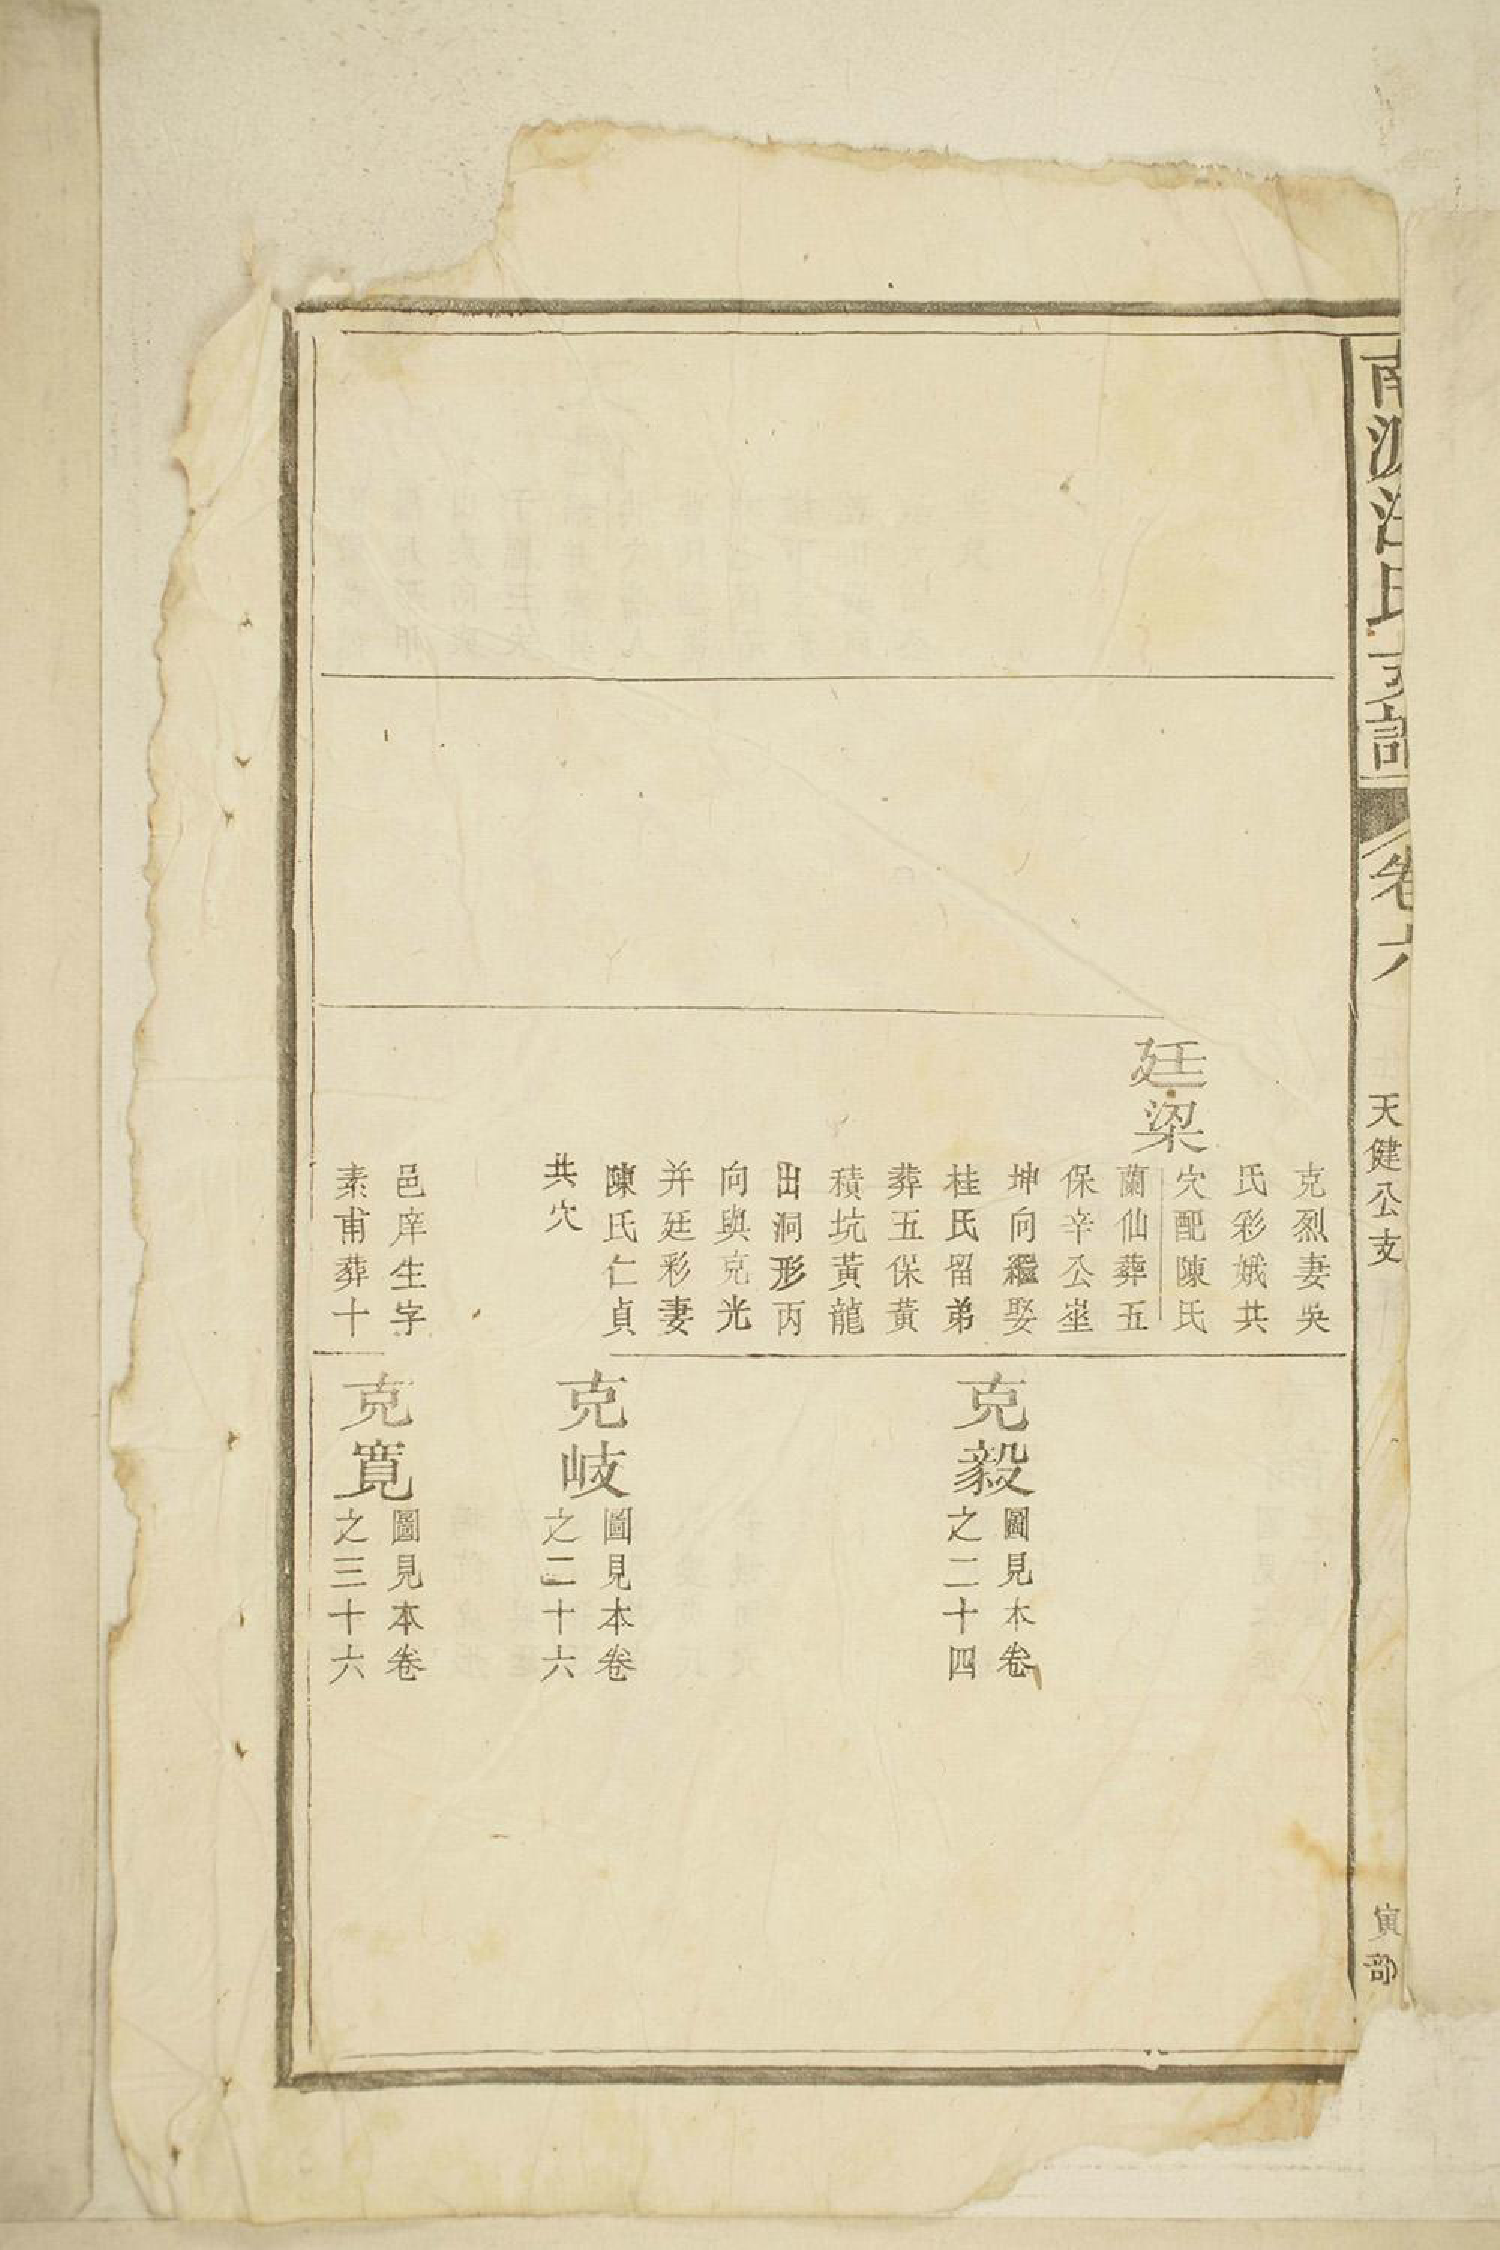 南源汪氏支譜
卷六
天健公支
寅部
克烈妻吳
氏彩娥共
穴配陳氏
廷梁
蘭仙葬五
保辛公坐
坤向繼娶
桂氏留弟
葬五保黃
積坑黃龍
出洞形丙
向與克光
并廷彩妻
陳氏仁貞
共穴
邑庠生字
素甫葬十
克毅
圖見本卷
之二十四
克岐
圖見本卷
之二十六
克寬
圖見本卷
之三十六